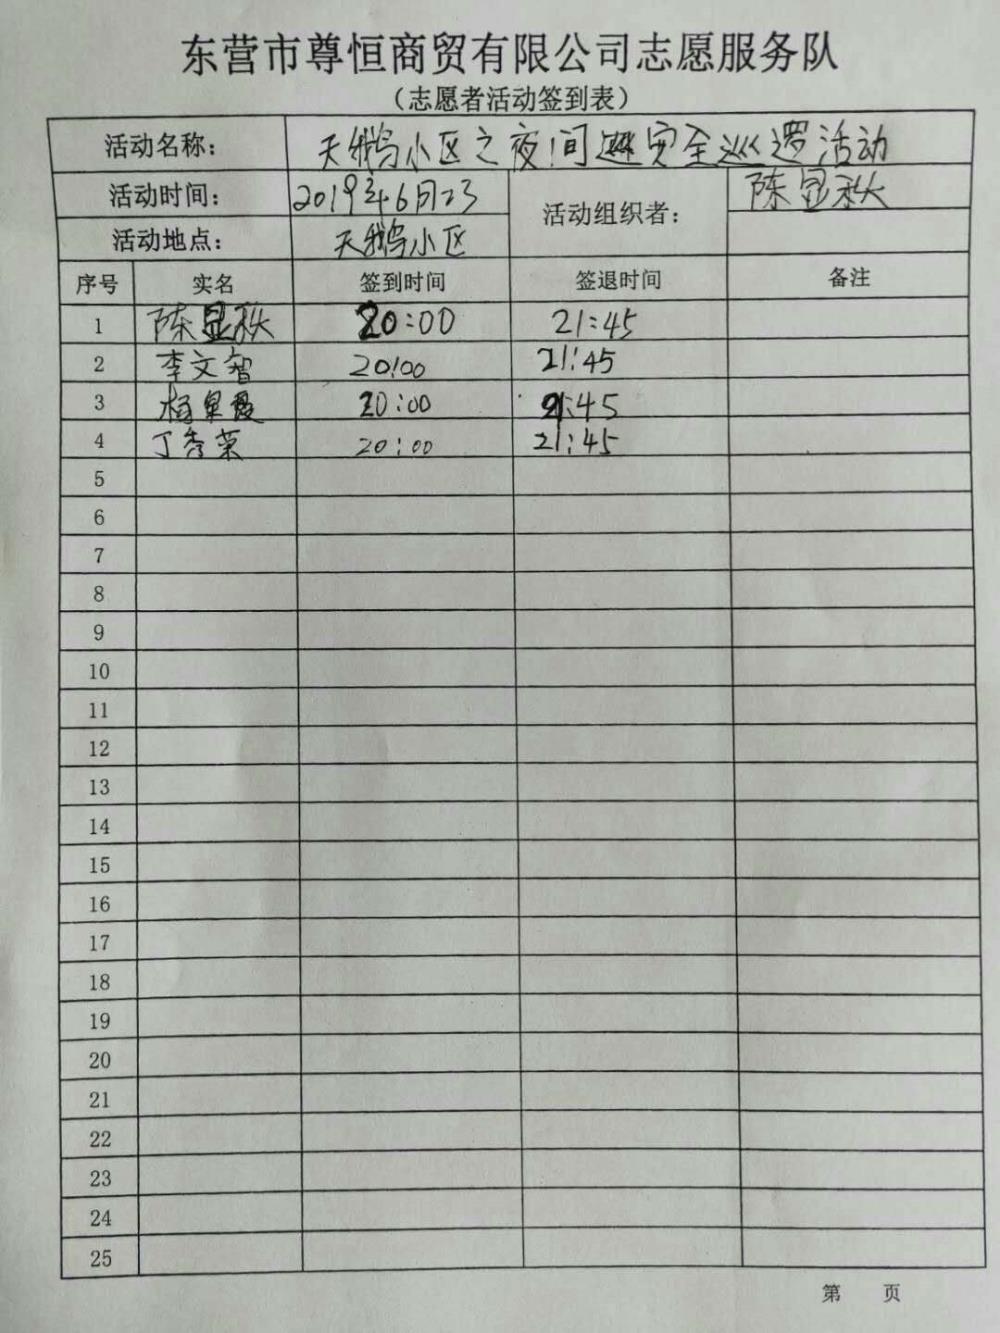 东营市尊恒商贸有限公司志愿服务队
（志愿者活动签到表）
活动名称： 天鹅小区之夜间安全巡逻活动
活动时间： 2019年6月23 活动组织者： 陈显秋
活动地点： 天鹅小区
序号 实名 签到时间 签退时间 备注
1 陈显秋 20:00 21:45
2 李文智 20:00 21:45
3 杨 20:00 21:45
4 丁秀荣 20:00 21:45
5
6
7
8
9
10
11
12
13
14
15
16
17
18
19
20
21
22
23
24
25
第 页